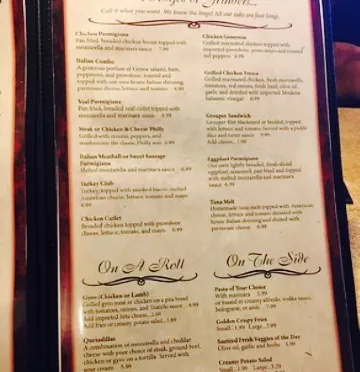 Call it what you want. We know the lingo! All our subs are foot long.
Chicken Parmigiana
Pan fried, breaded chicken breast topped with
mozzarella and marinara sauce 7.99
Italian Combo
A generous portion of Genoa salami, ham,
pepperoni, and provolone, toasted and
topped with our own house Italian dressing,
parmesan cheese, lettuce and tomato
Veal Parmigiana
Pan fried, breaded veal cutlet topped with
mozzarella and marinara sauce
Steak or Chicken & Cheese Philly
Grilled with onions, peppers, and
mushrooms the classic Philly way
Italian Meatball or Sweet Sausage
Parmigiana
Melted mozzarella and marinara sauce
Turkey Club
Turkey, topped with smoked bacon, melted
American cheese, lettuce, tomato and mayo
Chicken Cutlet
Breaded chicken topped with provolone
cheese, lettuce, tomato, and mayo
Chicken Genovese
Grilled marinated chicken topped with
imported provolone, pesto mayo and roasted
red peppers
Grilled Chicken Fresca
Grilled marinated chicken, fresh mozzarella,
tomatoes, red onions, fresh basil, olive oil,
garlic and drizzled with imported Modena
balsamic vinegar
Grouper Sandwich
Grouper filet blackened or broiled, topped
with lettuce and tomato Served with a pickle
slice and tartar sauce
Add cheese
Eggplant Parmigiana
Our own lightly breaded, fresh-sliced
eggplant, seasoned, pan fried and topped
with melted mozzarella and marinara
sauce
Tuna Melt
Homemade tuna melt topped with American
cheese, lettuce and tomato drizzled with
house Italian dressing and dusted with
parmesan cheese
On A Roll
Gyro (Chicken or Lamb)
Grilled gyro meat or chicken on a pita bread
with tomatoes, onions, and Tzatziki sauce
Add imported feta cheese
Add fries or creamy potato salad
Quesadillas
A combination of mozzarella and cheddar
cheese with your choice of steak, ground beef,
chicken or gyro on a tortilla. Served with
sour cream
On The Side
Pasta of Your Choice
With marinara
or tossed in creamy alfredo, vodka sauce,
bolognese, or
Golden Crispy Fries
Small Large
Sautéed Fresh Veggies of the Day
Olive oil, garlic and herbs
Creamy Potato Salad
Small Large